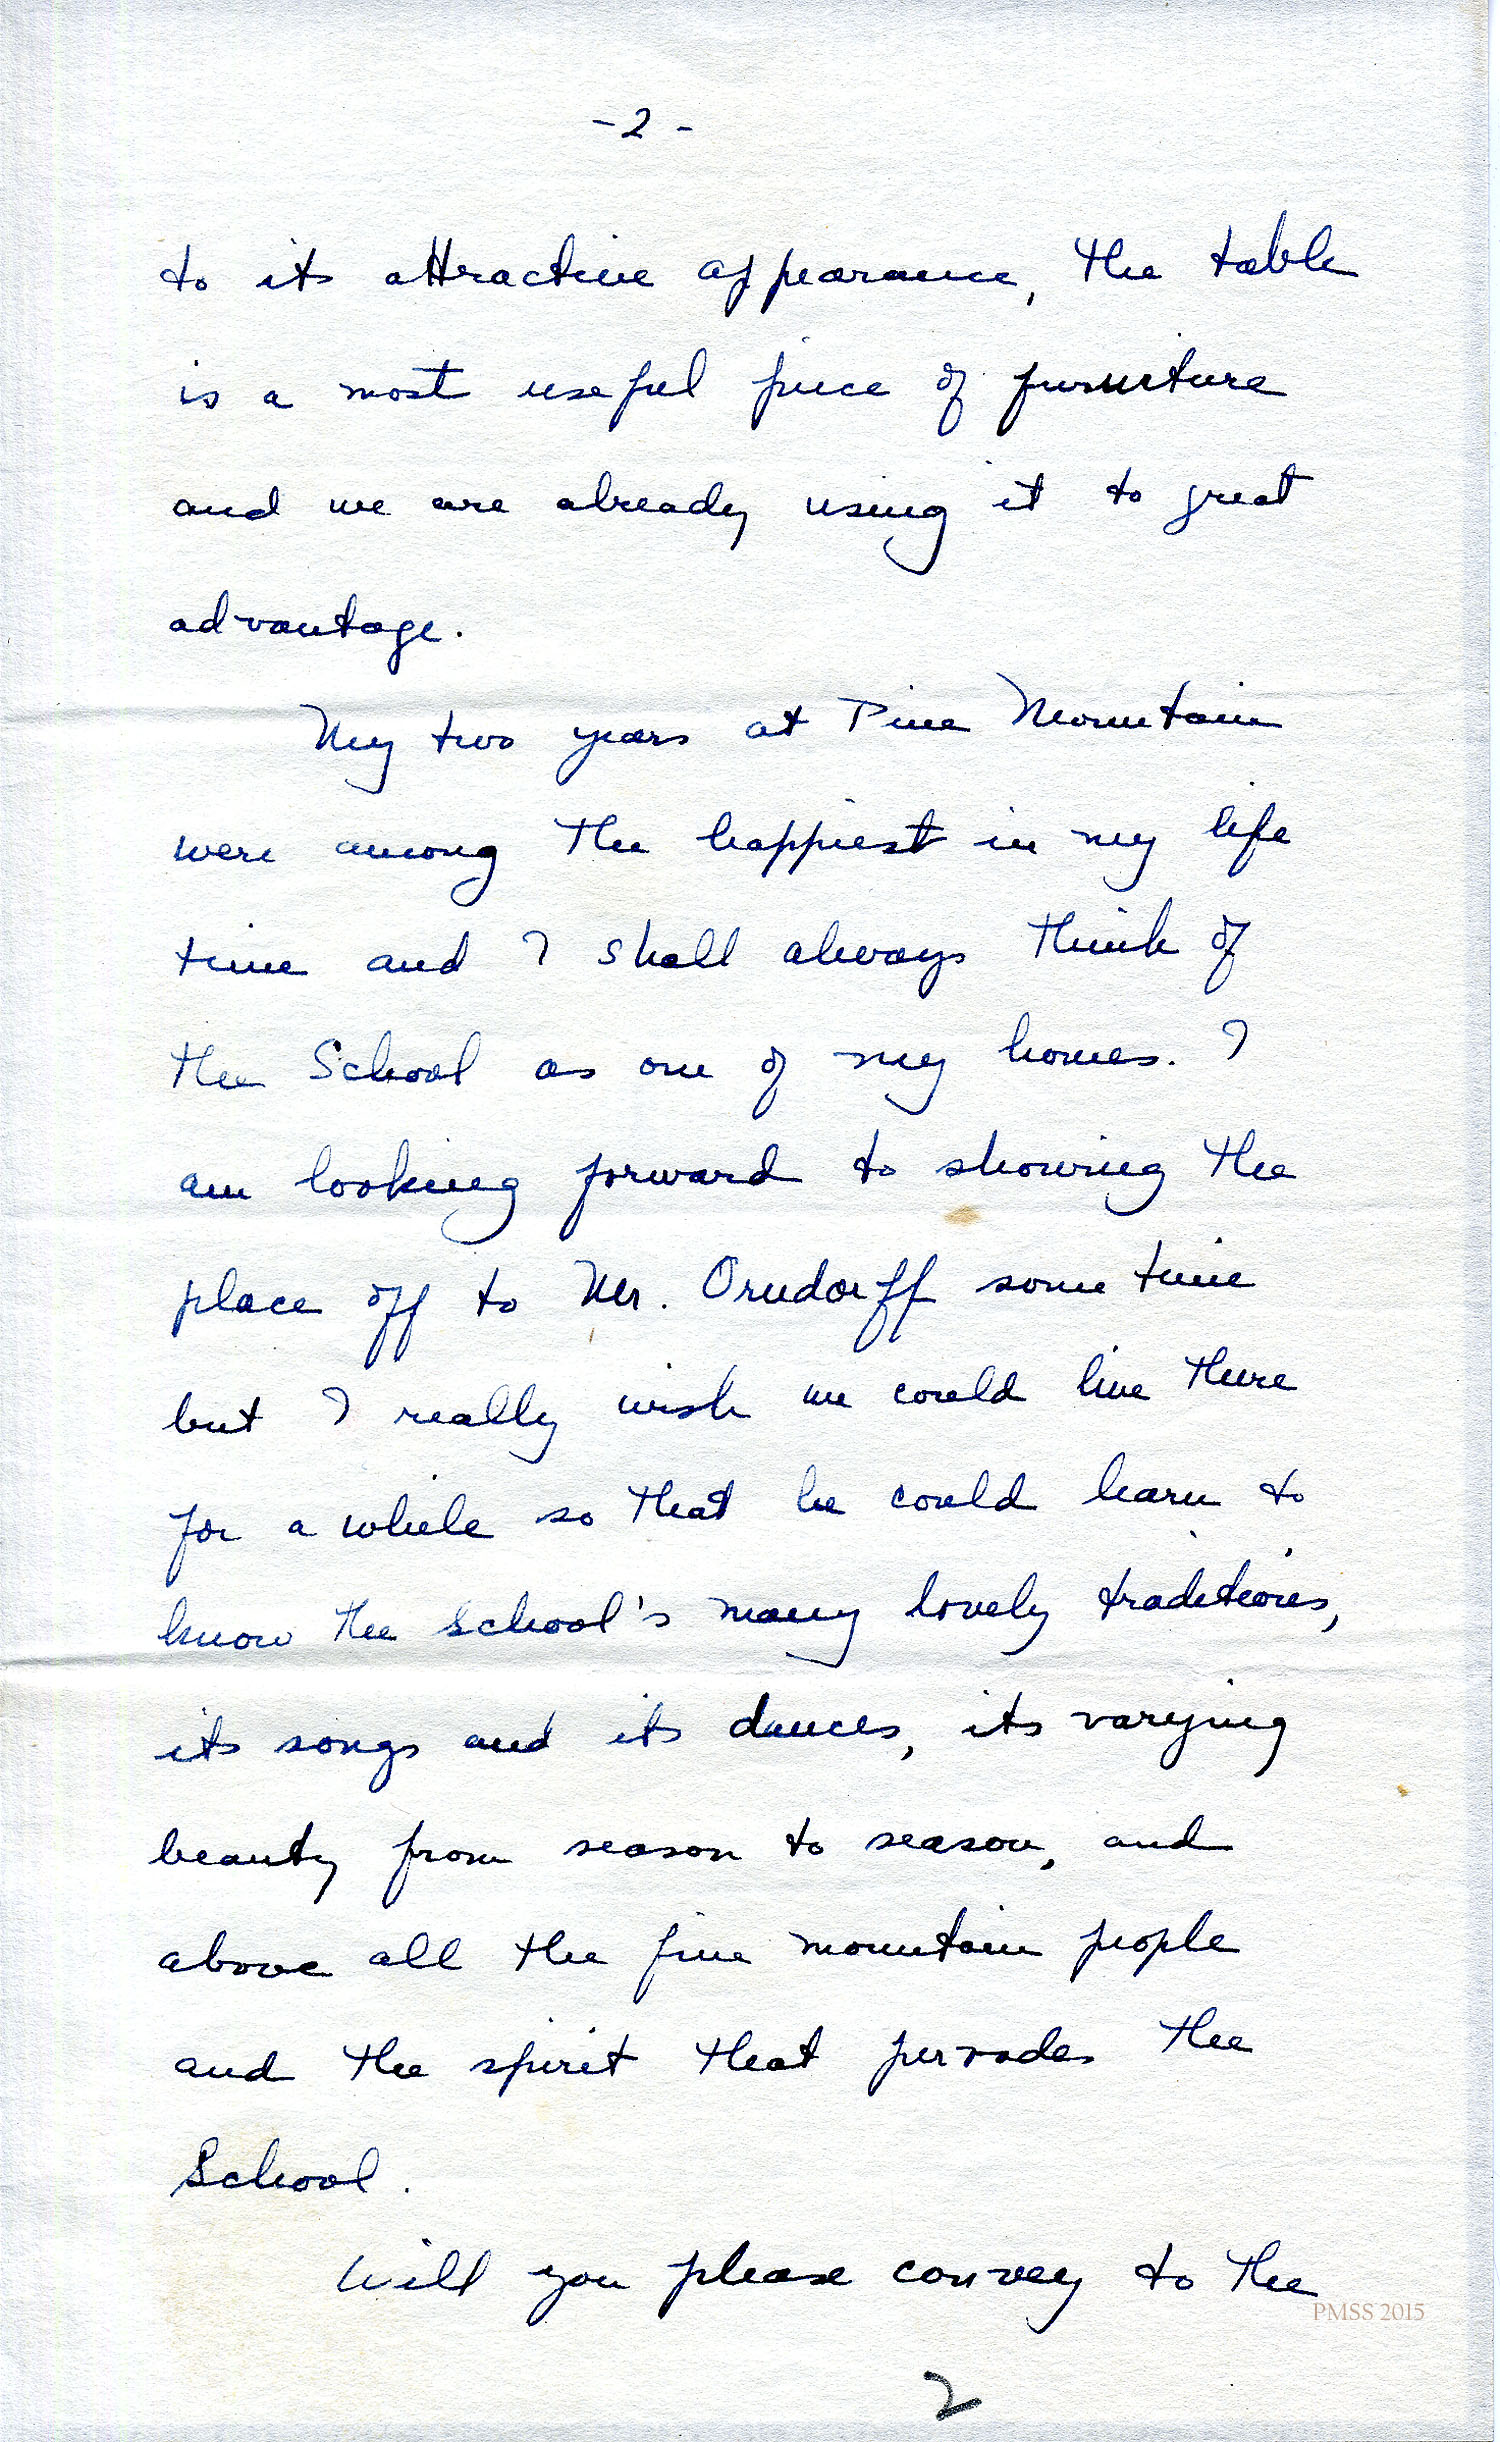 -2-
to its attractive appearance, the table
is a most useful piece of furniture
and we are already using it to great
advantage.
My two years at Pine Mountain
were among the happiest in my life
time and I shall always think of
the School as one of my homes. I
am looking forward to showing the
place off to Mr. Orndorff some time
but I really wish we could live there
for a while so that he could learn to
know the School's many lovely traditions,
its songs and its dances, its varying
beauty from season to season, and
above all the fine mountain people
and the spirit that pervades the
School.
Will you please convey to the
PMSS 2015
2